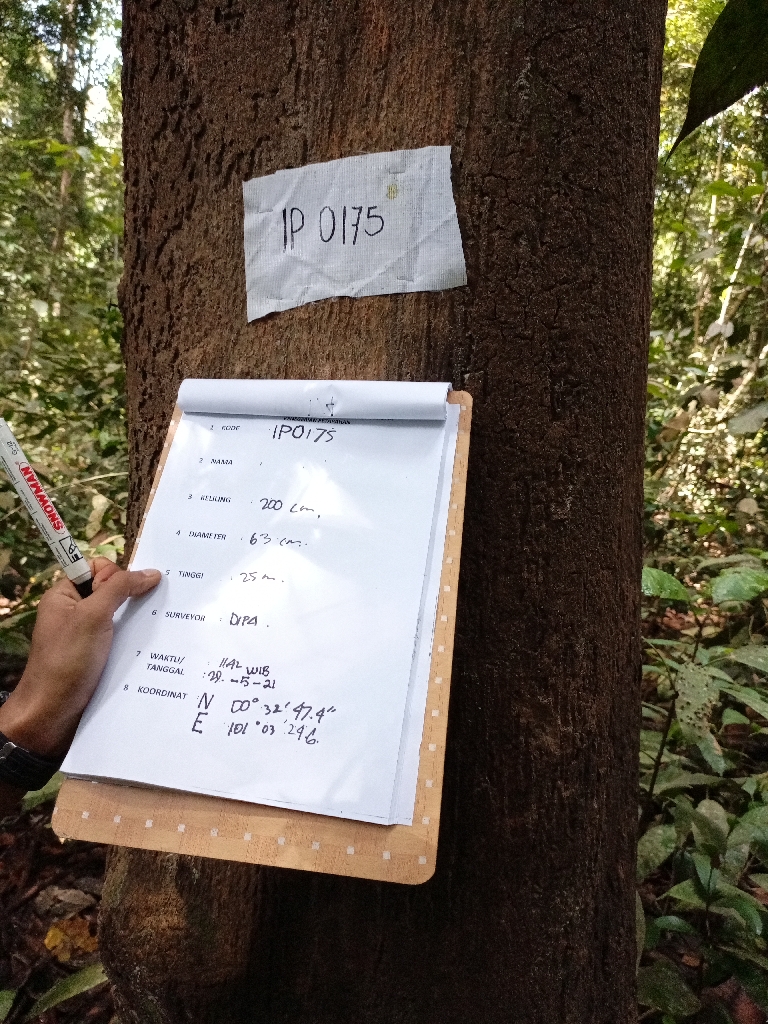 IP 0175
1 KODE : IP0175
2 NAMA :
3 KELILING : 200 cm.
4 DIAMETER : 63 cm.
5 TINGGI : 25 m.
6 SURVEYOR : DIPA.
7 WAKTU/ : WIB
TANGGAL : 29 - 5 - 21
8 KOORDINAT : N 00° 32' 47.4"
E 101° 03' 24.6
SNOWMAN